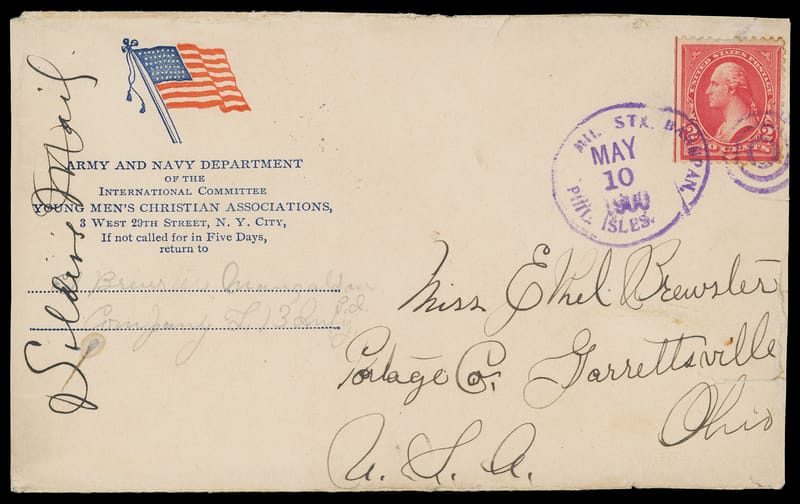 Soldiers Mail.
ARMY AND NAVY DEPARTMENT
OF THE
INTERNATIONAL COMMITTEE
YOUNG MEN'S CHRISTIAN ASSOCIATIONS,
3 WEST 29TH STREET, N. Y. CITY,
If not called for in Five Days,
return to
Mangaldan
Company L 13 Infty P.I.
UNITED STATES POSTAGE
TWO CENTS
MIL. STA. BAUMPAN,
MAY
10
1900
PHIL. ISLES.
Miss Ethel Brewster
Portage Co. Garrettsville
Ohio
U. S. A.